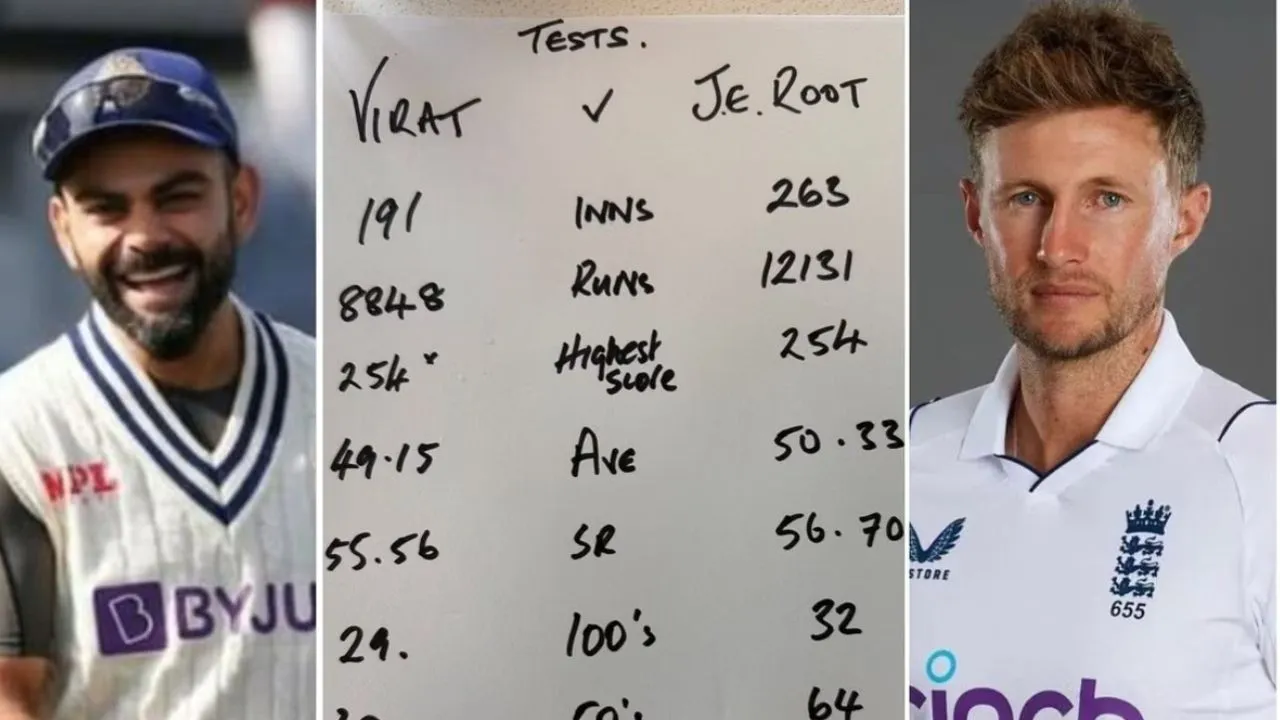 TESTS.
VIRAT ✓ J.E. ROOT
191 INNS 263
8848 RUNS 12131
254* Highest score 254
49.15 AVE 50.33
55.56 SR 56.70
29. 100's 32
64
MPL
BYJU
STORE
655
cinch